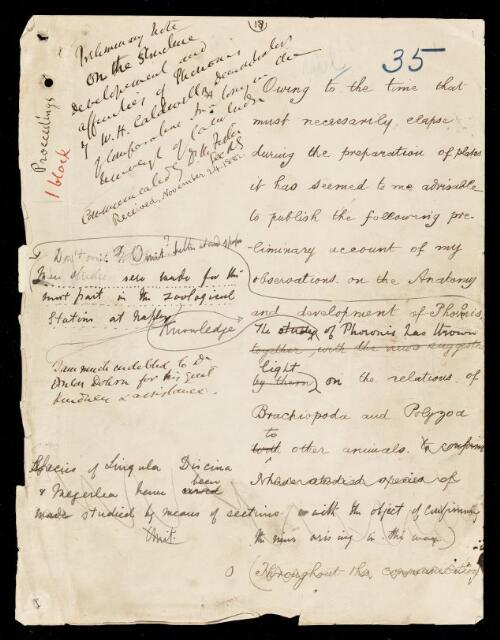 18
35
Preliminary Note
On the Structure
Development and
affinities of Phoronis
by W. H. Caldwell BA Demonstrator
of Comparative Anatomy in the
University of Cambridge
Communicated by
Received, November 24. 1882.
Proceedings
1 block
Owing to the time that
must necessarily elapse
during the preparation of plates
it has seemed to me advisable
to publish the following pre-
liminary account of my
observations on the Anatomy
and development of Phoronis,
The study of Phoronis has thrown
together with the views suggested
light
by them on the relations of
Brachiopoda and Polyzoa
to
with other animals. To confirm
I have studied species of
with the object of confirming
the views arising in this way
(Throughout this communication
Don't omit Omit
These studies were made for the
most part in the Zoological
Station at Naples
Knowledge
I am much indebted to Dr
Dohrn for his great
kindness & assistance.
Species of Lingula Discina
& Megerlea have been
made studied by means of sections
Omit